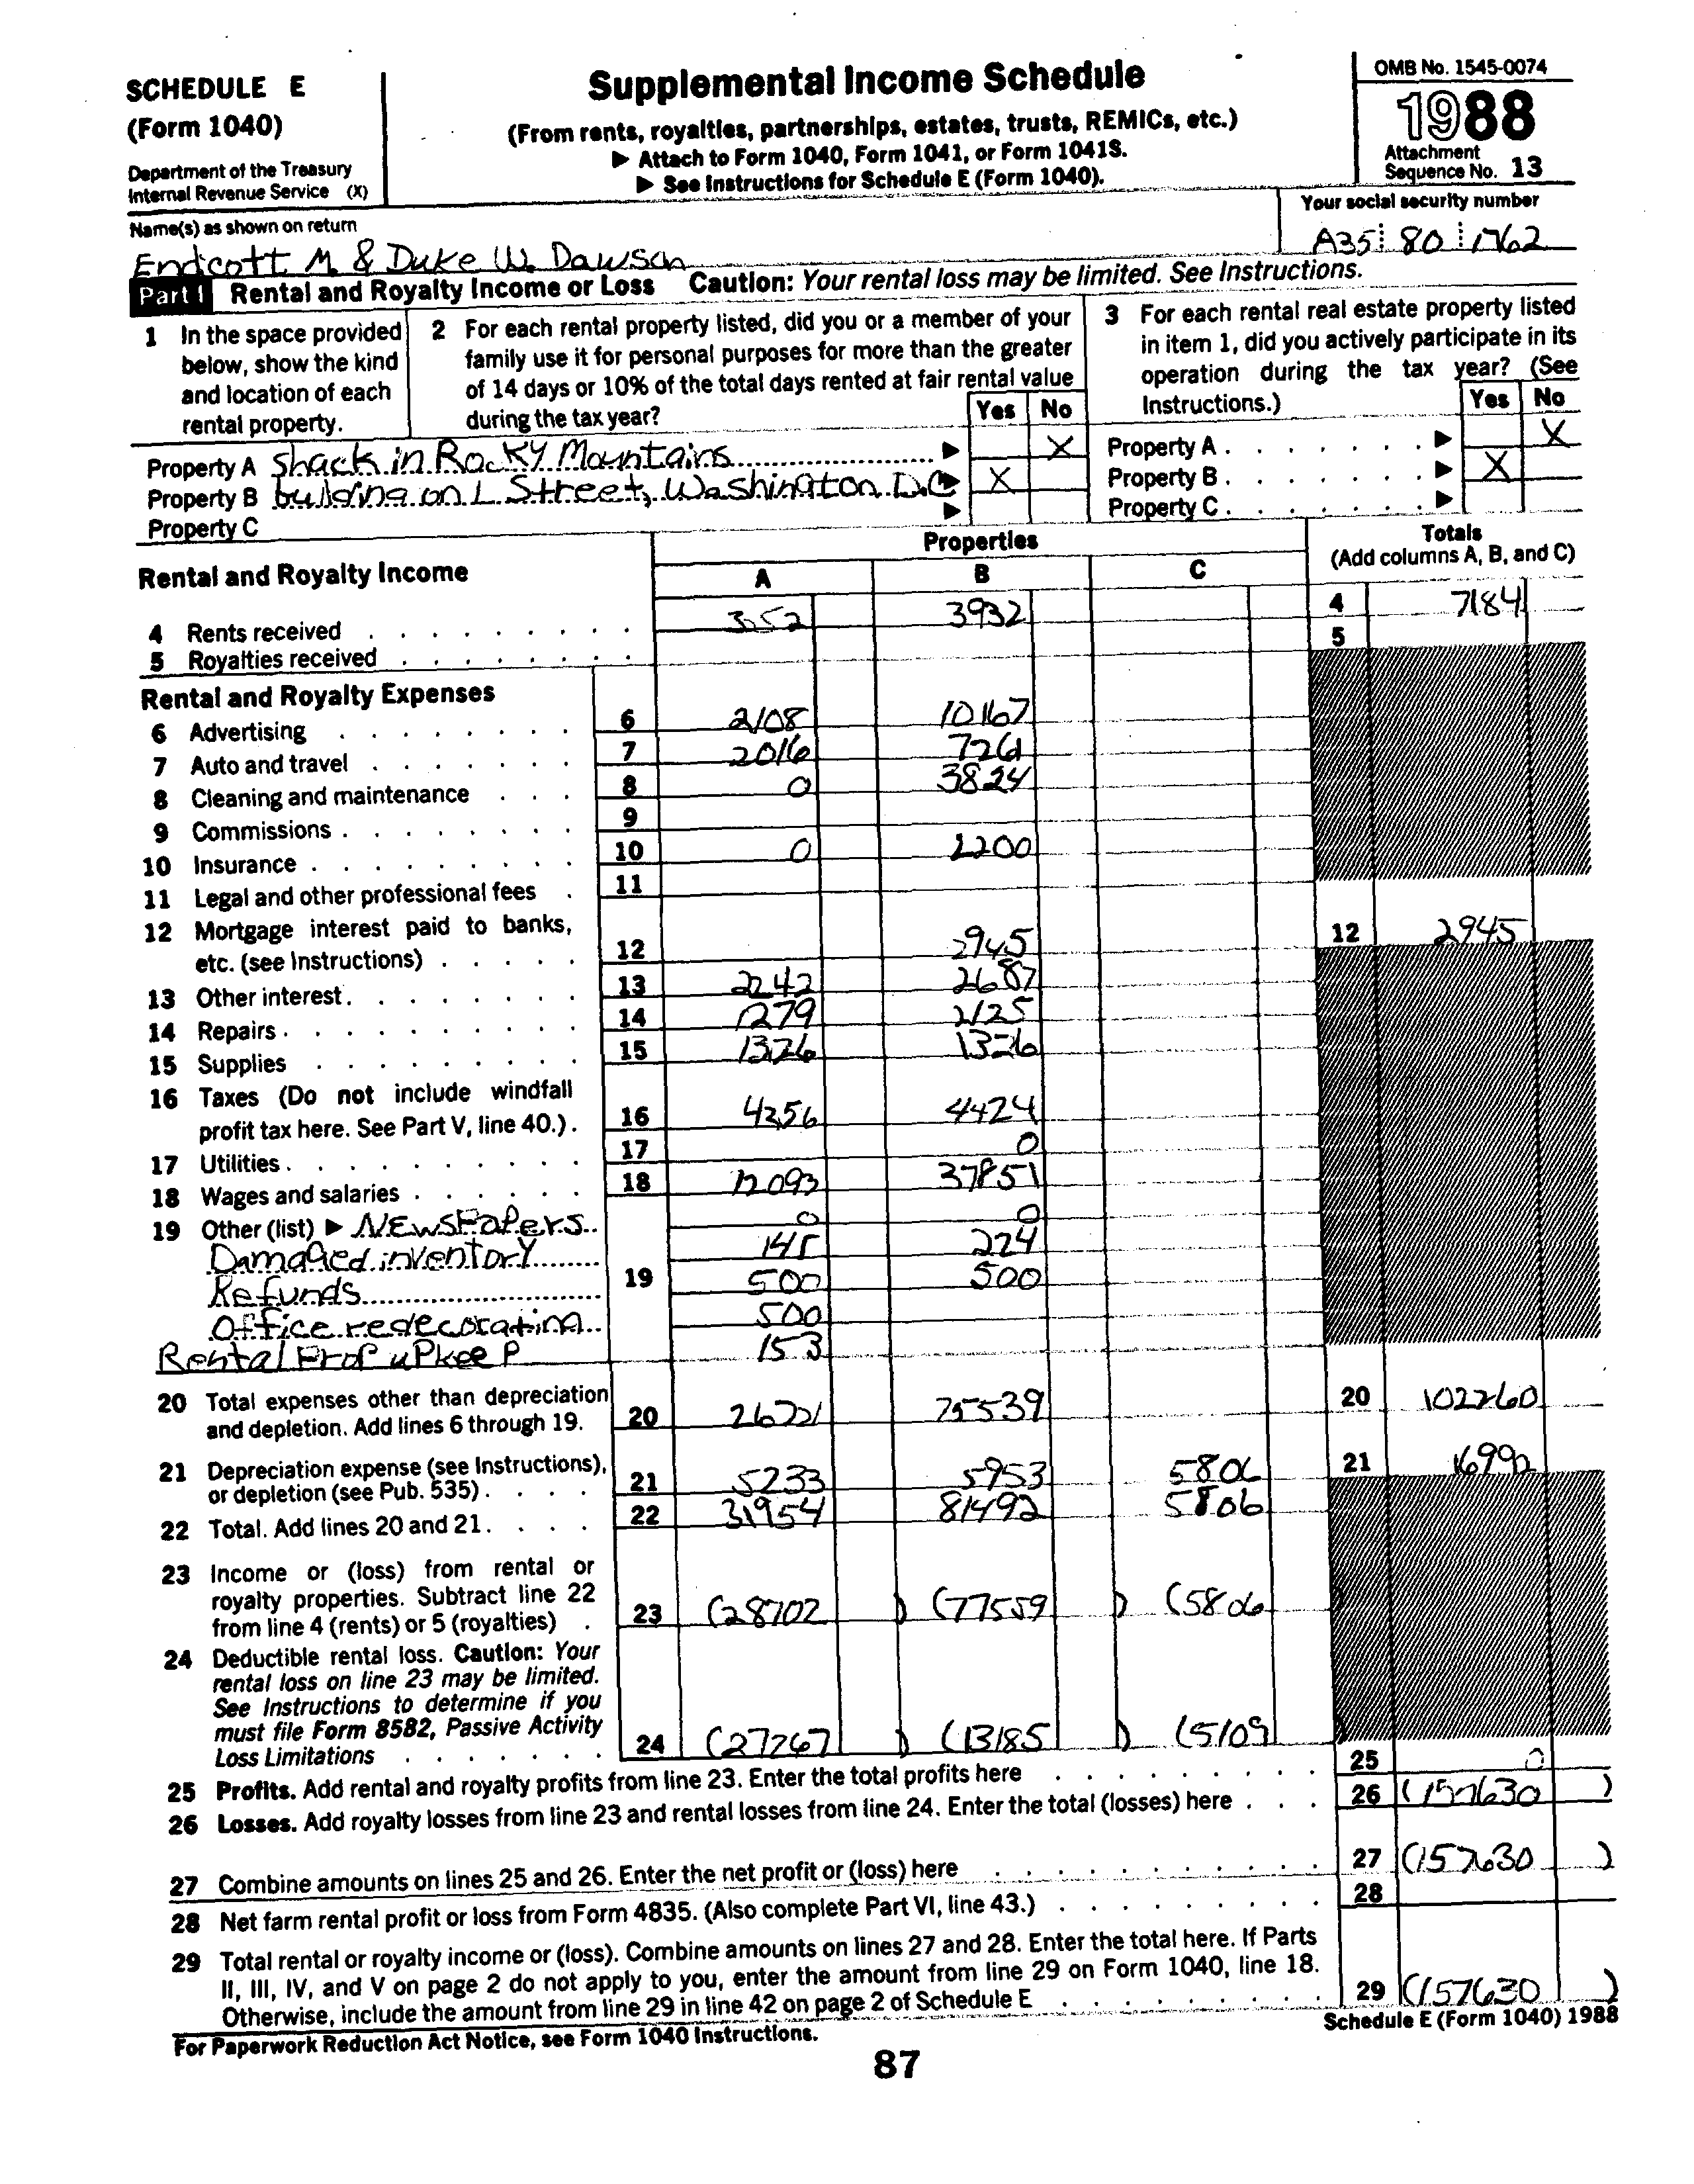 SCHEDULE E
(Form 1040)
Department of the Treasury
Internal Revenue Service (X)
Supplemental Income Schedule
(From rents, royalties, partnerships, estates, trusts, REMICs, etc.)
▶ Attach to Form 1040, Form 1041, or Form 1041S.
▶ See Instructions for Schedule E (Form 1040).
OMB No. 1545-0074
1988
Attachment
Sequence No. 13
Name(s) as shown on return
Your social security number
Endcott M. & Duke W. Dawson
A35 80 1762
Part I Rental and Royalty Income or Loss Caution: Your rental loss may be limited. See Instructions.
1 In the space provided
below, show the kind
and location of each
rental property.
2 For each rental property listed, did you or a member of your
family use it for personal purposes for more than the greater
of 14 days or 10% of the total days rented at fair rental value
during the tax year?
Yes No
3 For each rental real estate property listed
in item 1, did you actively participate in its
operation during the tax year? (See
Instructions.)
Yes No
Property A Shack in Rocky Mountains ▶ X Property A ▶ X
Property B building on L Street, Washington D.C ▶ X Property B ▶ X
Property C ▶ Property C ▶
Rental and Royalty Income
Properties
A B C
Totals
(Add columns A, B, and C)
4 Rents received 3252 3932 4 7184
5 Royalties received 5
Rental and Royalty Expenses
6 Advertising 6 2108 10167
7 Auto and travel 7 2016 7261
8 Cleaning and maintenance 8 0 3824
9 Commissions 9
10 Insurance 10 0 1200
11 Legal and other professional fees 11
12 Mortgage interest paid to banks,
etc. (see Instructions) 12 2945 12 2945
13 Other interest 13 2242 2687
14 Repairs 14 1279 2125
15 Supplies 15 1326 1326
16 Taxes (Do not include windfall
profit tax here. See Part V, line 40.) 16 4256 4424
17 Utilities 17 0
18 Wages and salaries 18 12093 37851
19 Other (list) ▶ NEwsPaPers 0 0
Damaged inventory 145 224
Refunds 19 500 500
Office redecorating 500
Rental Prop uPkeep 153
20 Total expenses other than depreciation
and depletion. Add lines 6 through 19. 20 26721 75539 20 102260
21 Depreciation expense (see Instructions),
or depletion (see Pub. 535) 21 5233 5953 5806 21 16992
22 Total. Add lines 20 and 21 22 31954 81492 5806
23 Income or (loss) from rental or
royalty properties. Subtract line 22
from line 4 (rents) or 5 (royalties) 23 (28702 ) (77559 ) (5806 )
24 Deductible rental loss. Caution: Your
rental loss on line 23 may be limited.
See Instructions to determine if you
must file Form 8582, Passive Activity
Loss Limitations 24 (27267 ) (13185 ) (5109 )
25 Profits. Add rental and royalty profits from line 23. Enter the total profits here 25 0
26 Losses. Add royalty losses from line 23 and rental losses from line 24. Enter the total (losses) here 26 (157630 )
27 Combine amounts on lines 25 and 26. Enter the net profit or (loss) here 27 (157630 )
28 Net farm rental profit or loss from Form 4835. (Also complete Part VI, line 43.) 28
29 Total rental or royalty income or (loss). Combine amounts on lines 27 and 28. Enter the total here. If Parts
II, III, IV, and V on page 2 do not apply to you, enter the amount from line 29 on Form 1040, line 18.
Otherwise, include the amount from line 29 in line 42 on page 2 of Schedule E 29 (157630 )
For Paperwork Reduction Act Notice, see Form 1040 Instructions. Schedule E (Form 1040) 1988
87